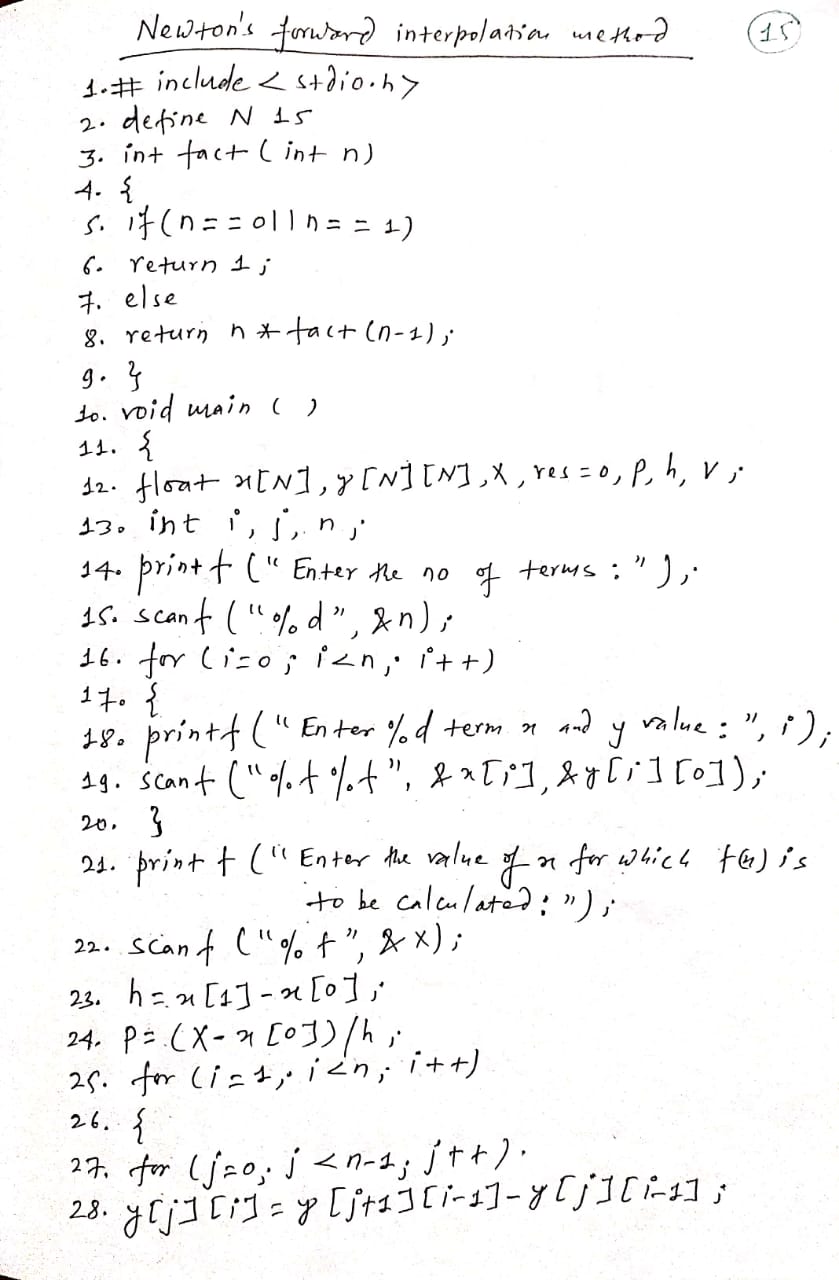 Newton's forward interpolation method
15
1. # include < stdio.h>
2. define N 15
3. int fact ( int n)
4. {
5. if (n = = 0 || n = = 1)
6. return 1 ;
7. else
8. return n * fact (n-1) ;
9. }
10. void main ( )
11. {
12. float x[N], y[N][N], X, res = 0, P, h, V ;
13. int i, j, n ;
14. printf (" Enter the no of terms : ") ;
15. scanf ("%d", &n) ;
16. for (i=0 ; i<n ; i++)
17. {
18. printf (" Enter %d term x and y value : ", i) ;
19. scanf ("%f %f", &x[i], &y[i][0]) ;
20. }
21. printf (" Enter the value of x for which f(x) is
to be calculated : ") ;
22. scanf ("%f", &X) ;
23. h = x[1] - x[0] ;
24. P = (X - x[0])/h ;
25. for (i=1 ; i<n ; i++)
26. {
27. for (j=0 ; j <n-1 ; j++)
28. y[j][i] = y[j+1][i-1] - y[j][i-1] ;